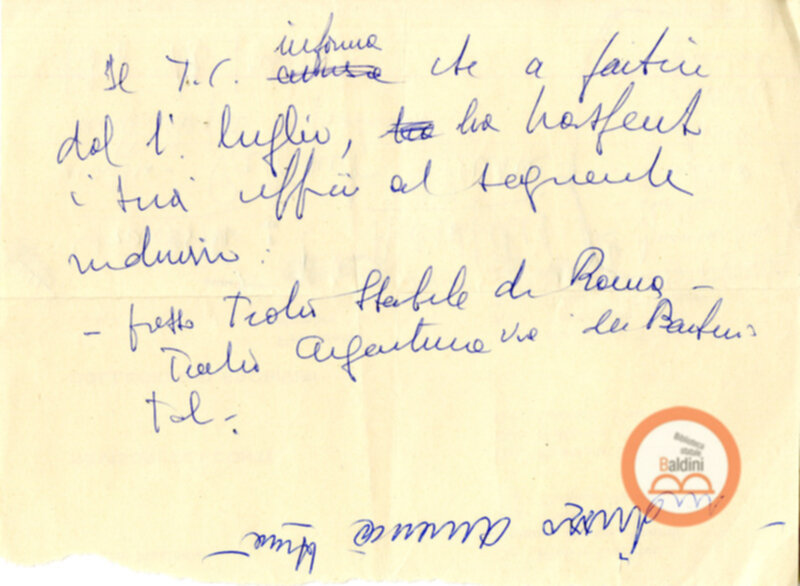 informa
Il T.C. avvisa che a partire
dal 1° luglio, ha ha trasferit
i suoi uffici al seguente
indirizzo:
- presso Teatro Stabile di Roma -
Teatro Argentina via dei Barbieri
tel.
Biblioteca
statale
Baldini